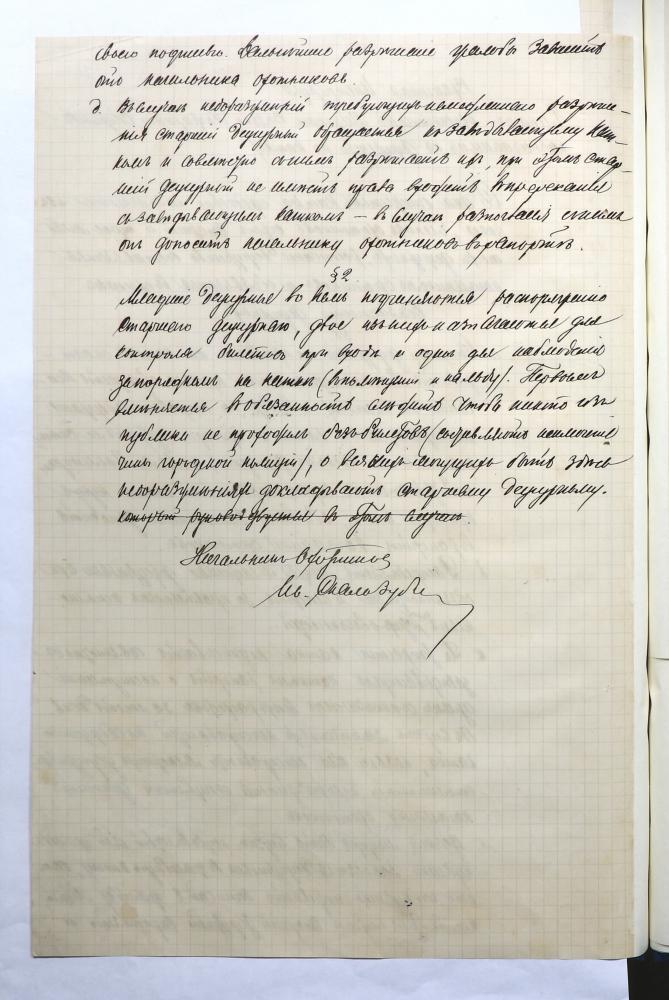 свою подпись. Дальнѣйшее разрѣшеніе жалобы зависитъ
отъ начальника охотниковъ.
д. Въ случаѣ недоразумѣній требующихъ немедленнаго разрѣше-
нія старшій дежурный обращается къ завѣдывающему кат-
комъ и совмѣстно съ нимъ разрѣшаетъ ихъ, при этомъ стар-
шій дежурный не имѣетъ права входить въ пререканія
съ завѣдывающимъ каткомъ — въ случаѣ разногласія съ нимъ
онъ доноситъ начальнику охотниковъ въ рапортѣ.
§ 2
Младшіе дежурные во всемъ подчиняются распоряженію
старшаго дежурнаго, двое изъ нихъ назначаются для
контроля билетовъ при входѣ и одинъ для наблюденія
за порядкомъ на каткѣ (въ помѣщеніи и на льду). Первымъ
вмѣняется въ обязанность слѣдить чтобы никто изъ
публики не проходилъ безъ билетовъ (составляютъ исключеніе
чины городской полиціи), о всякихъ могущихъ быть здѣсь
недоразумѣніяхъ докладываютъ старшему дежурному.
который руководствуется въ этомъ случаѣ
Начальникъ Охотниковъ